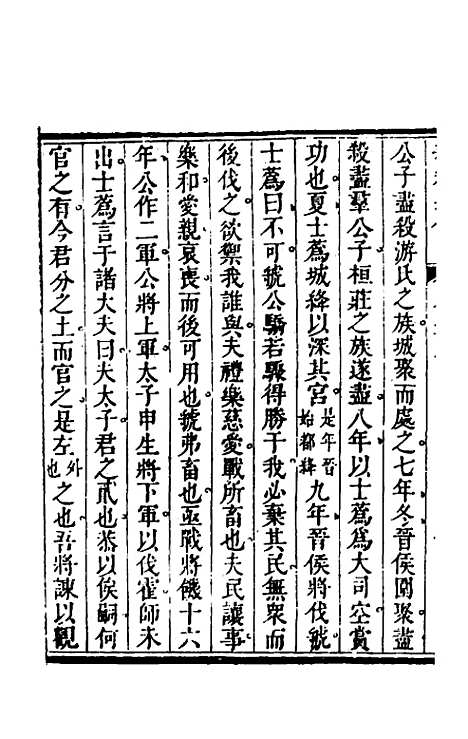 公子盡殺游氏之族城聚而處之七年冬晉侯圍聚盡
殺盡羣公子桓莊之族遂盡八年以士蔿爲大司空賞
功也夏士蔿城絳以深其宮是年晉始都絳九年晉侯將伐虢
士蔿曰不可虢公驕若驟得勝于我必棄其民無衆而
後伐之欲禦我誰與夫禮樂慈愛戰所畜也夫民讓事
樂和愛親哀喪而後可用也虢弗畜也亟戰將饑十六
年公作二軍公將上軍太子申生將下軍以伐霍師未
出士蔿言于諸大夫曰夫太子君之貳也恭以俟嗣何
官之有今君分之土而官之是左外也之也吾將諫以觀